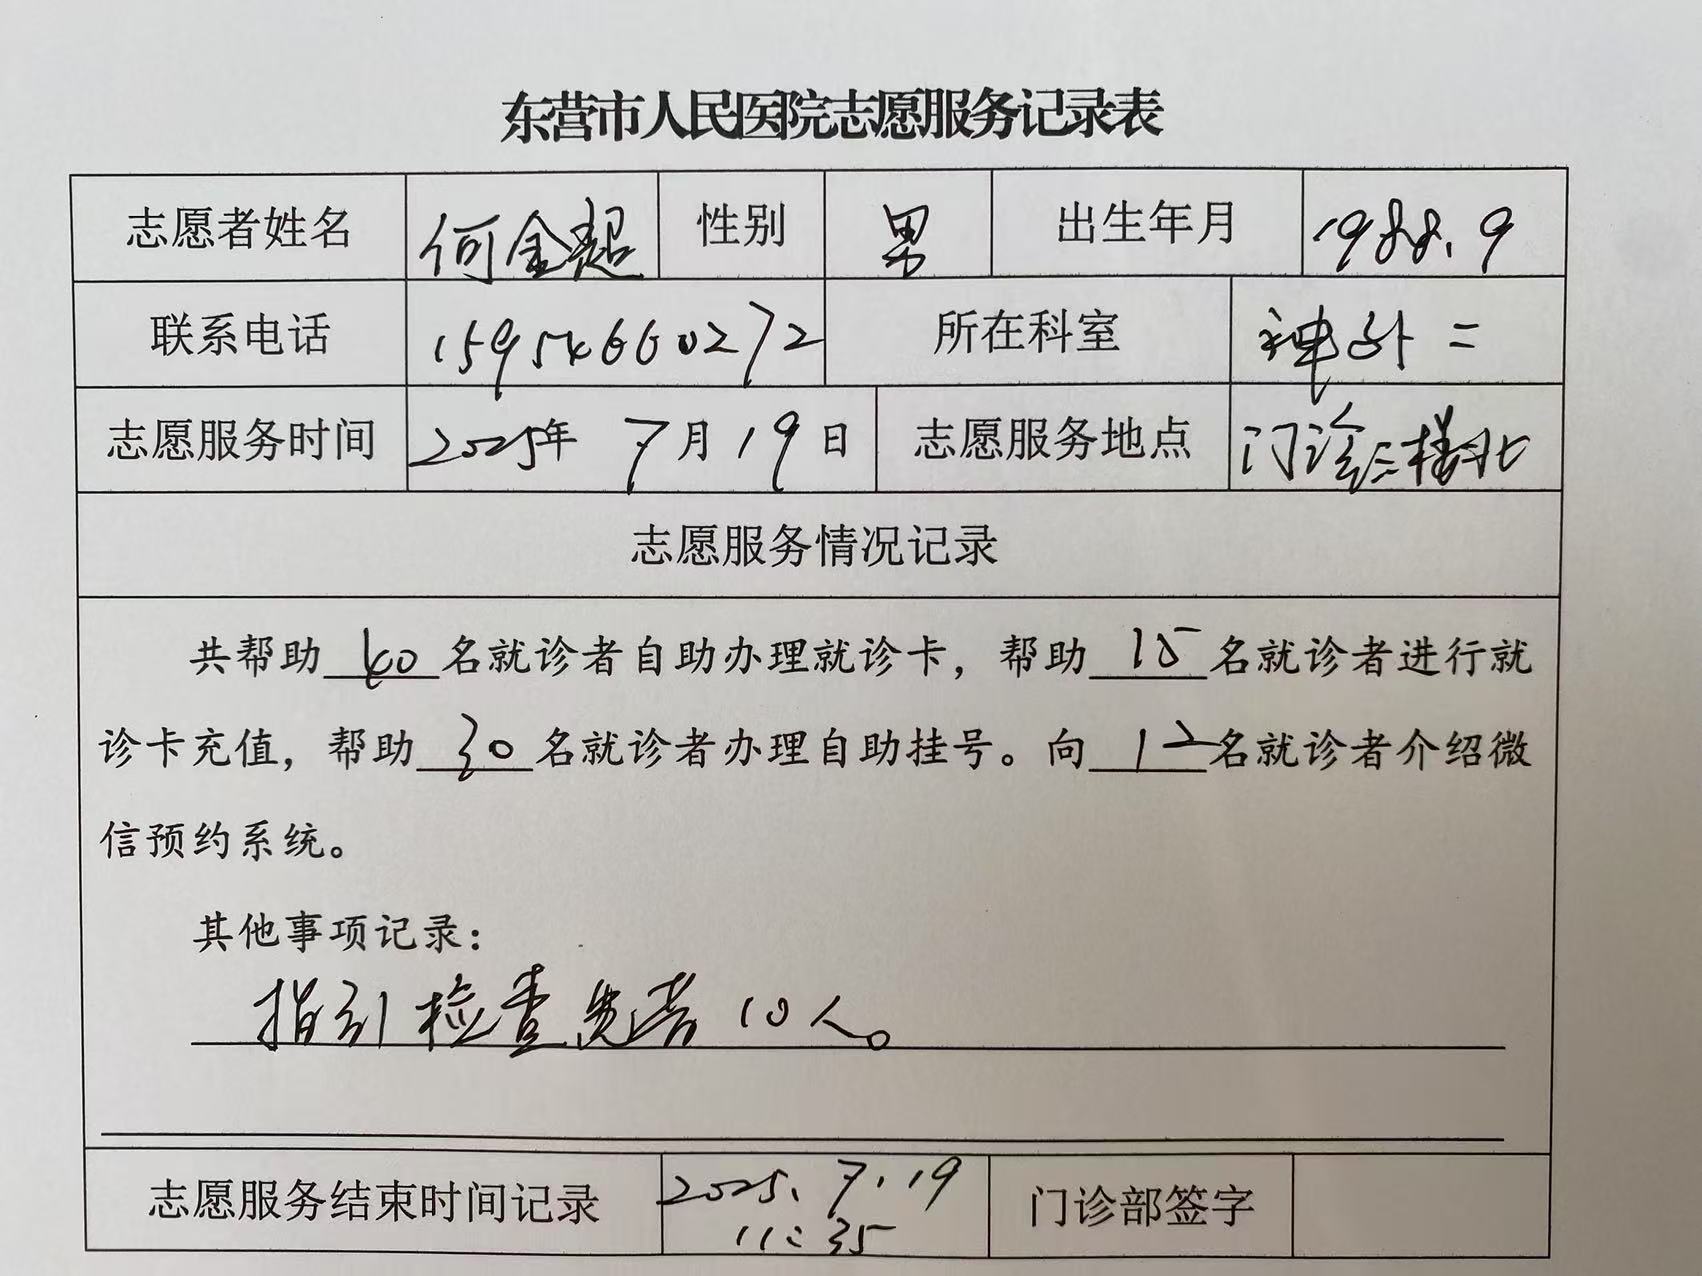 东营市人民医院志愿服务记录表
志愿者姓名 何金超 性别 男 出生年月 1988.9
联系电话 15954660272 所在科室 神外二
志愿服务时间 2025年 7月19日 志愿服务地点 门诊三楼北
志愿服务情况记录
共帮助 40 名就诊者自助办理就诊卡，帮助 15 名就诊者进行就
诊卡充值，帮助 30 名就诊者办理自助挂号。向 12 名就诊者介绍微
信预约系统。
其他事项记录：
指引检查患者10人。
志愿服务结束时间记录 2025.7.19 门诊部签字
11:35